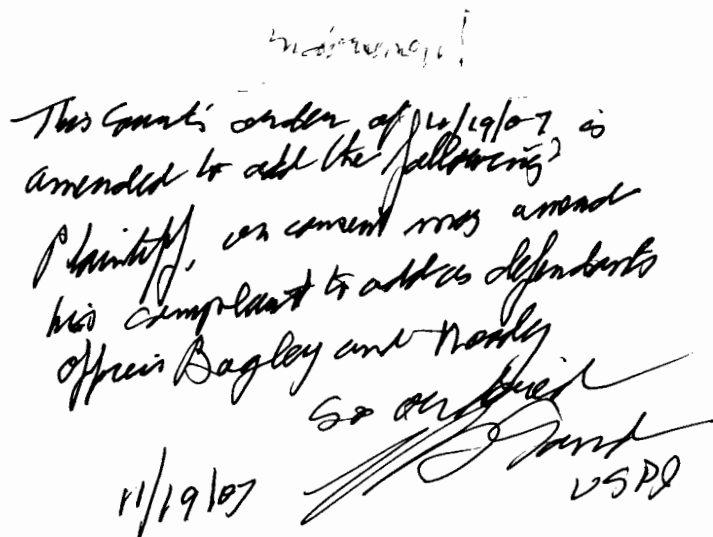 This Court's order of 10/19/07 is
amended to add the following:
Plaintiff, on consent may amend
his complaint to add as defendants
officers Bagley and
So ordered
Sand
11/19/07
USDJ